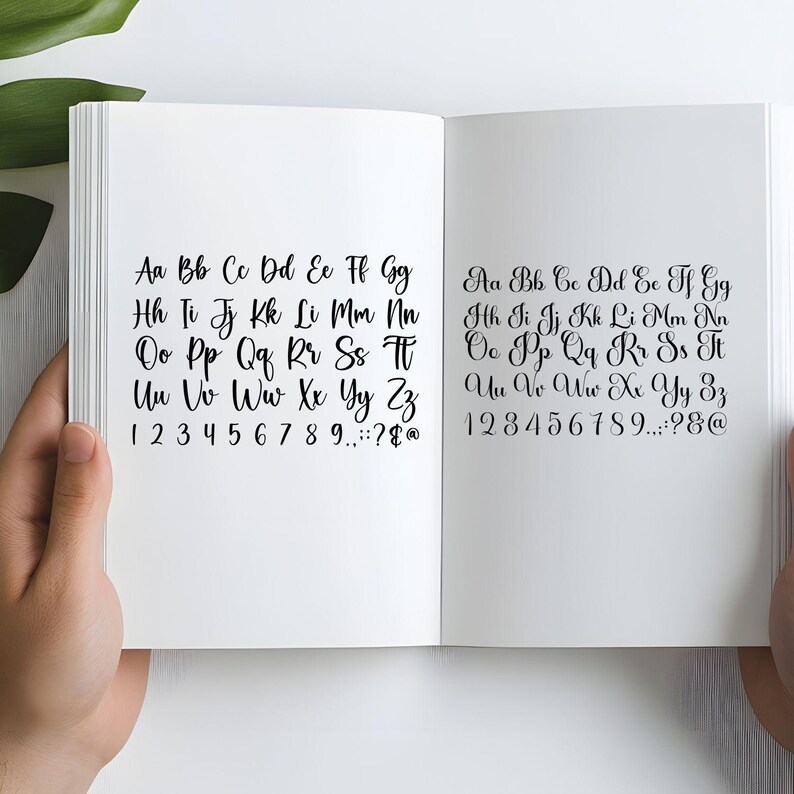 Aa Bb Cc Dd Ee Ff Gg
Hh Ii Jj Kk Li Mm Nn
Oo Pp Qq Rr Ss Tt
Uu Vv Ww Xx Yy Zz
1 2 3 4 5 6 7 8 9.,;:?&@
Aa Bb Cc Dd Ee Ff Gg
Hh Ii Jj Kk Li Mm Nn
Oo Pp Qq Rr Ss Tt
Uu Vv Ww Xx Yy Zz
1 2 3 4 5 6 7 8 9.,;:?&@